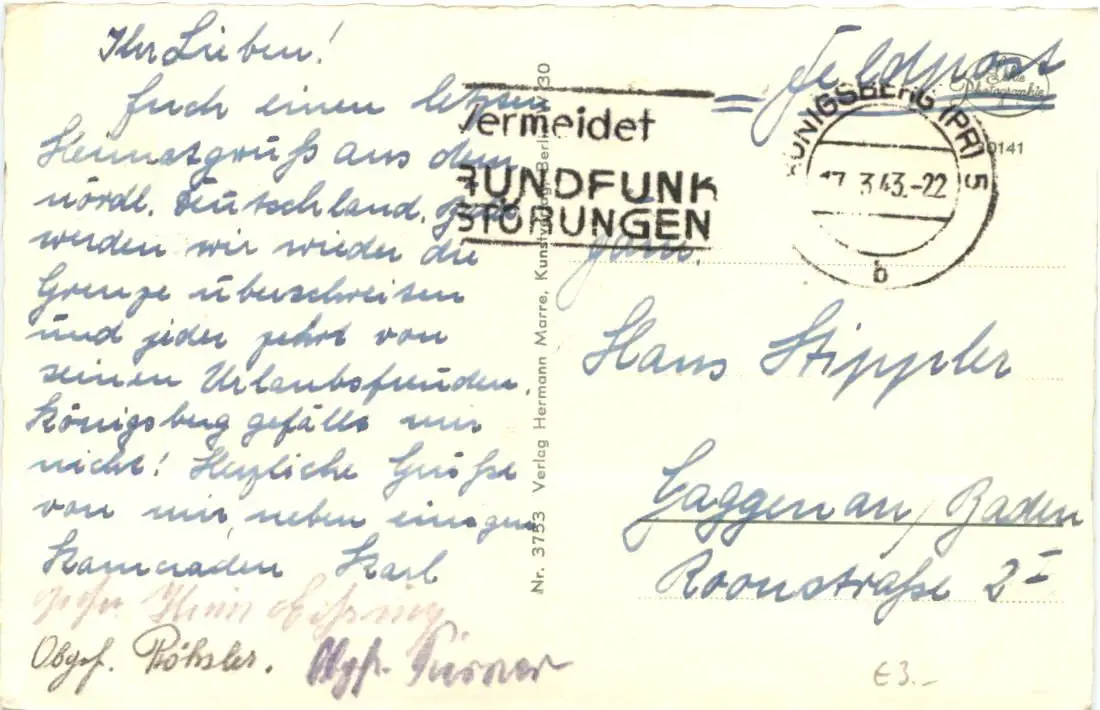 Ihr Lieben!
Euch einen letzten
Heimatgruß aus dem
nördl. Deutschland.
werden wir wieder die
Grenze überschreiten
und jeder zehrt von
seinen Urlaubsfreuden.
Königsberg gefällt mir
nicht! Herzliche Grüße
von mir, neben einigen
Kameraden Karl
Obgef. Röhsler.
Nr. 3753 Verlag Hermann Marre, Kunstverlag, Berlin 30
Vermeidet
RUNDFUNK
STÖRUNGEN
Feldpost
Echte
Photographie
KÖNIGSBERG (PR) 5
17.3.43.-22
b
Fam.
Hans Stippler
Gaggenau, Baden
Roonstraße 2 I
€3.-